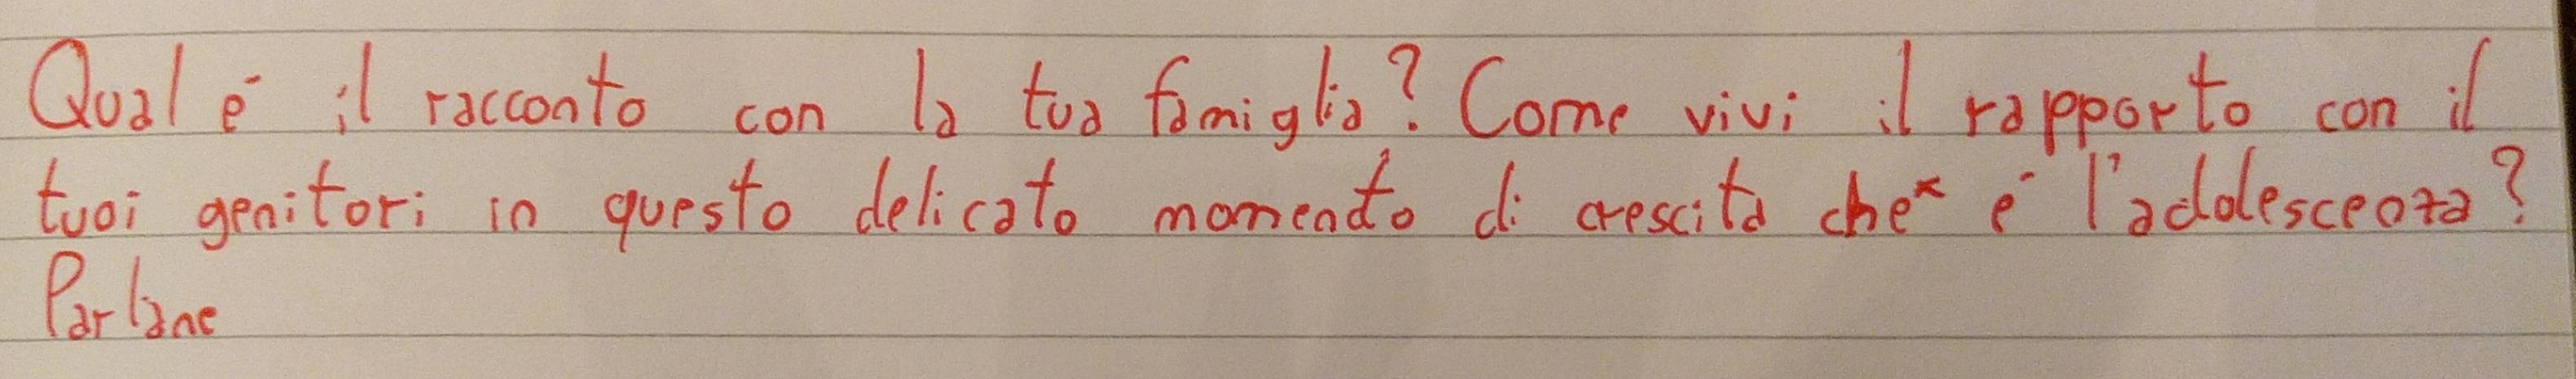 Qual è il racconto con la tua famiglia? Come vivi il rapporto con il
tuoi genitori in questo delicato momento di crescita che* è l'adolescenza?
Parlane